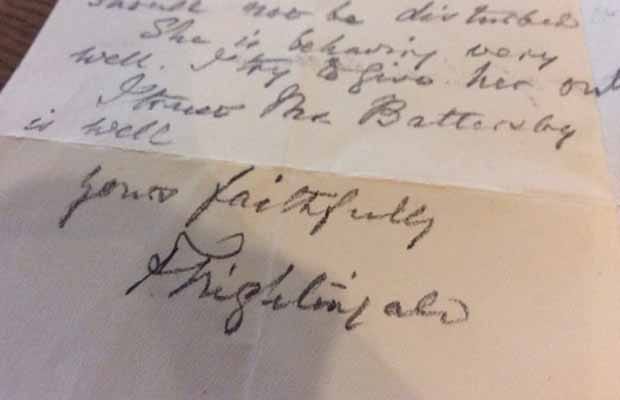 should not be disturbed
She is behaving very
well. I try to give her out
I trust Mr Battersby
is well
yours faithfully
F Nightingale